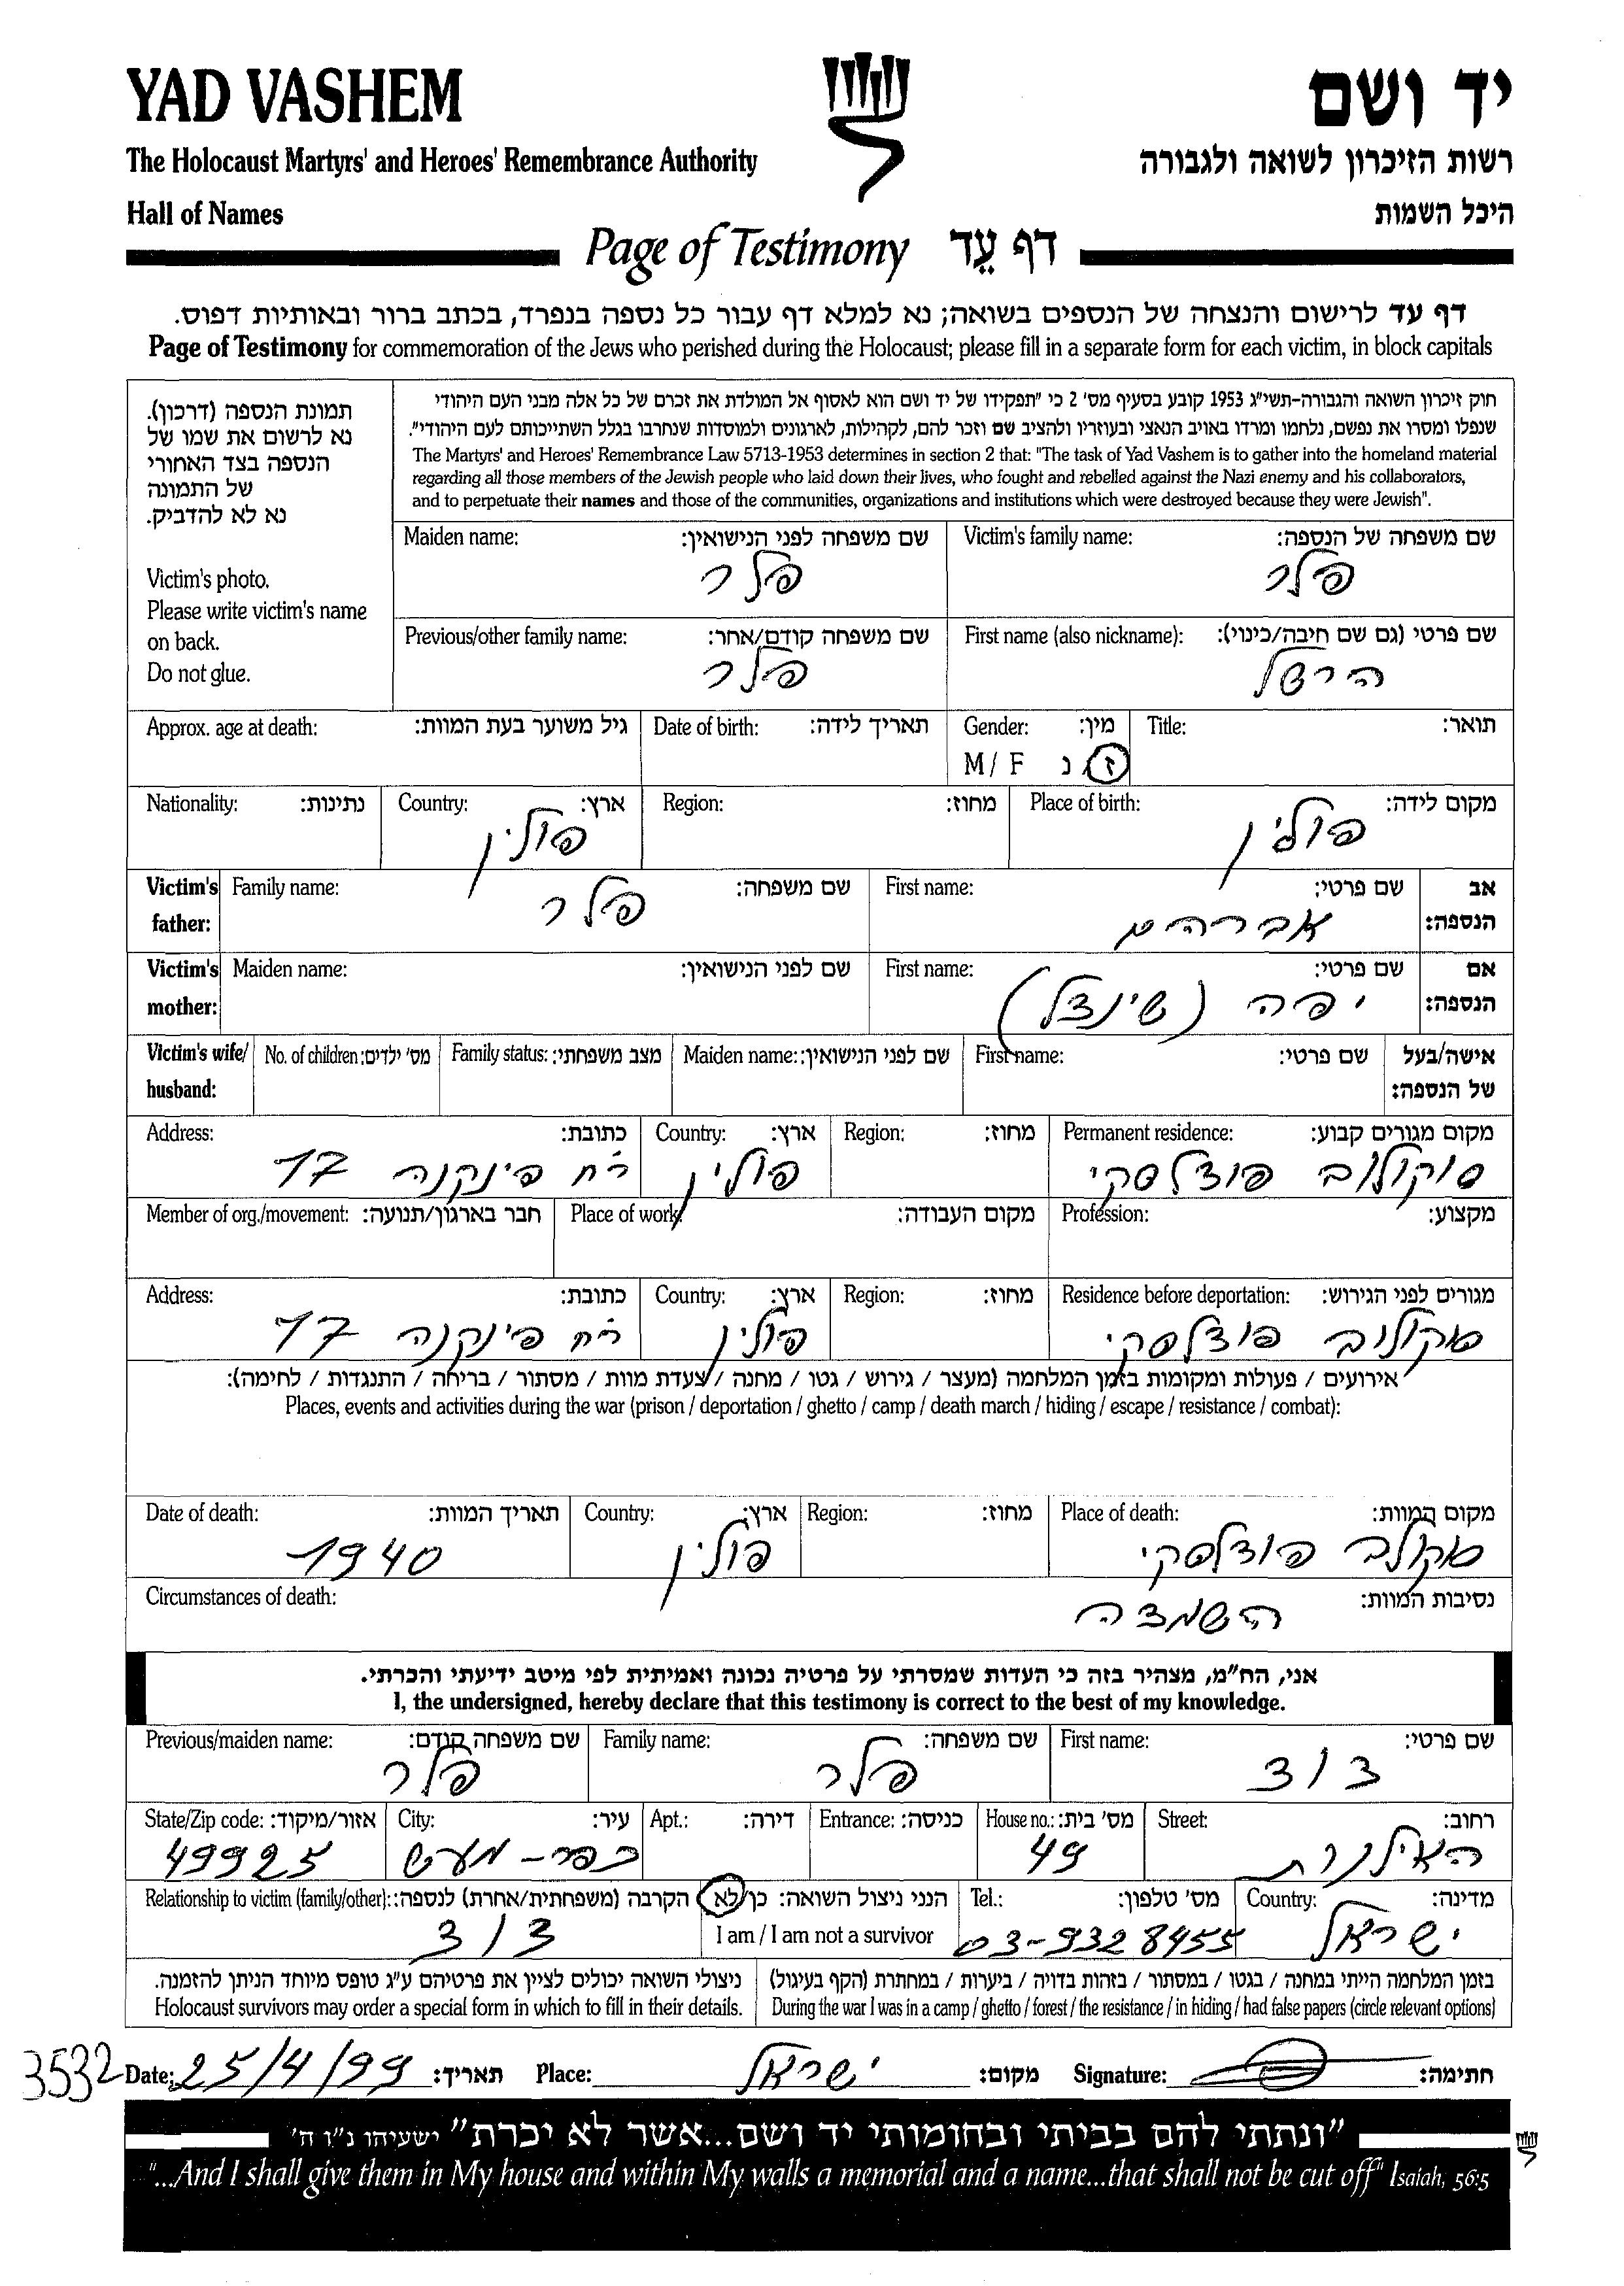 YAD VASHEM
יד ושם
The Holocaust Martyrs' and Heroes' Remembrance Authority
רשות הזיכרון לשואה ולגבורה
Hall of Names
היכל השמות
Page of Testimony דף עֵד
דף עד לרישום והנצחה של הנספים בשואה; נא למלא דף עבור כל נספה בנפרד, בכתב ברור ובאותיות דפוס.
Page of Testimony for commemoration of the Jews who perished during the Holocaust; please fill in a separate form for each victim, in block capitals
תמונת הנספה (דרכון).
נא לרשום את שמו של
הנספה בצד האחורי
של התמונה
נא לא להדביק.
Victim's photo.
Please write victim's name
on back.
Do not glue.
חוק זיכרון השואה והגבורה-תשי"ג 1953 קובע בסעיף מס' 2 כי "תפקידו של יד ושם הוא לאסוף אל המולדת את זכרם של כל אלה מבני העם היהודי
שנפלו ומסרו את נפשם, נלחמו ומרדו באויב הנאצי ובעוזריו ולהציב שם וזכר להם, לקהילות, לארגונים ולמוסדות שנחרבו בגלל השתייכותם לעם היהודי".
The Martyrs' and Heroes' Remembrance Law 5713-1953 determines in section 2 that: "The task of Yad Vashem is to gather into the homeland material
regarding all those members of the Jewish people who laid down their lives, who fought and rebelled against the Nazi enemy and his collaborators,
and to perpetuate their names and those of the communities, organizations and institutions which were destroyed because they were Jewish".
Victim's family name: שם משפחה של הנספה:
פלר
Maiden name: שם משפחה לפני הנישואין:
פלר
First name (also nickname): שם פרטי (גם שם חיבה/כינוי):
הרשל
Previous/other family name: שם משפחה קודם/אחר:
פלר
Title: תואר:
Gender: מין:
M/ F ז/ נ
Date of birth: תאריך לידה:
Approx. age at death: גיל משוער בעת המוות:
Place of birth: מקום לידה:
פולין
Region: מחוז:
Country: ארץ:
פולין
Nationality: נתינות:
Victim's father: אב הנספה:
First name: שם פרטי:
אברהם
Family name: שם משפחה:
פלר
Victim's mother: אם הנספה:
First name: שם פרטי:
יפה (שינדל)
Maiden name: שם לפני הנישואין:
Victim's wife/ husband: אישה/בעל של הנספה:
First name: שם פרטי:
Maiden name: שם לפני הנישואין:
Family status: מצב משפחתי:
No. of children: מס' ילדים:
Permanent residence: מקום מגורים קבוע:
סוקולוב פודלסקי
Region: מחוז:
Country: ארץ:
פולין
Address: כתובת:
רח פינקנה 17
Profession: מקצוע:
Place of work: מקום העבודה:
Member of org./movement: חבר בארגון/תנועה:
Residence before deportation: מגורים לפני הגירוש:
סקולוב פודלסקי
Region: מחוז:
Country: ארץ:
פולין
Address: כתובת:
רח פינקנה 17
אירועים / פעולות ומקומות בזמן המלחמה (מעצר / גירוש / גטו / מחנה / צעדת מוות / מסתור / בריחה / התנגדות / לחימה):
Places, events and activities during the war (prison / deportation / ghetto / camp / death march / hiding / escape / resistance / combat):
Place of death: מקום המוות:
סקולב פודלסקי
Region: מחוז:
Country: ארץ:
פולין
Date of death: תאריך המוות:
1940
Circumstances of death: נסיבות המוות:
השמדה
אני, הח"מ, מצהיר בזה כי העדות שמסרתי על פרטיה נכונה ואמיתית לפי מיטב ידיעתי והכרתי.
I, the undersigned, hereby declare that this testimony is correct to the best of my knowledge.
First name: שם פרטי:
דוד
Family name: שם משפחה:
פלר
Previous/maiden name: שם משפחה קודם:
פלר
Street: רחוב:
האילנות
House no.: מס' בית:
49
Entrance: כניסה:
Apt.: דירה:
City: עיר:
כפר-מעש
State/Zip code: אזור/מיקוד:
49925
Country: מדינה:
ישראל
Tel.: מס' טלפון:
03-9328455
הנני ניצול השואה: כן/לא
I am / I am not a survivor
Relationship to victim (family/other): הקרבה (משפחתית/אחרת) לנספה:
דוד
בזמן המלחמה הייתי במחנה / בגטו / במסתור / בזהות בדויה / ביערות / במחתרת (הקף בעיגול)
During the war I was in a camp / ghetto / forest / the resistance / in hiding / had false papers (circle relevant options)
ניצולי השואה יכולים לציין את פרטיהם ע"ג טופס מיוחד הניתן להזמנה.
Holocaust survivors may order a special form in which to fill in their details.
3532 Date: 25/4/99 תאריך: Place: ישראל מקום: Signature: חתימה:
"ונתתי להם בביתי ובחומותי יד ושם...אשר לא יכרת" ישעיהו נ"ו ה'
"...And I shall give them in My house and within My walls a memorial and a name...that shall not be cut off" Isaiah, 56:5